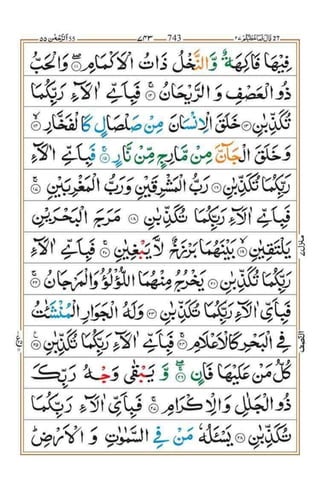 ٥٥ اَلرَّحْمٰن 55 ٧٤٣ 743 ٢٧ قَالَ فَمَا خَطْبُكُمْ 27
فِيْهَا فَاكِهَةٌ وَّالنَّخْلُ ذَاتُ الْاَكْمَامِ ۝١١ وَالْحَبُّ
ذُو الْعَصْفِ وَ الرَّيْحَانُ ۝١٢ فَبِاَىِّ اٰلَآءِ رَبِّكُمَا
تُكَذِّبٰنِ ۝١٣ خَلَقَ الْاِنْسَانَ مِنْ صَلْصَالٍ كَالْفَخَّارِ ۝١٤
وَ خَلَقَ الْجَآنَّ مِنْ مَّارِجٍ مِّنْ نَّارٍ ۝١٥ فَبِاَىِّ اٰلَآءِ
رَبِّكُمَا تُكَذِّبٰنِ ۝١٦ رَبُّ الْمَشْرِقَيْنِ وَرَبُّ الْمَغْرِبَيْنِ ۝١٧
فَبِاَىِّ اٰلَآءِ رَبِّكُمَا تُكَذِّبٰنِ ۝١٨ مَرَجَ الْبَحْرَيْنِ
يَلْتَقِيٰنِ ۝١٩ بَيْنَهُمَا بَرْزَخٌ لَّا يَبْغِيٰنِ ۝٢٠ فَبِاَىِّ اٰلَآءِ
رَبِّكُمَا تُكَذِّبٰنِ ۝٢١ يَخْرُجُ مِنْهُمَا اللُّؤْلُؤُ وَالْمَرْجَانُ ۝٢٢
فَبِاَىِّ اٰلَآءِ رَبِّكُمَا تُكَذِّبٰنِ ۝٢٣ وَلَهُ الْجَوَارِ الْمُنْشَئٰتُ
فِى الْبَحْرِ كَالْاَعْلَامِ ۝٢٤ فَبِاَىِّ اٰلَآءِ رَبِّكُمَا تُكَذِّبٰنِ ۝٢٥
كُلُّ مَنْ عَلَيْهَا فَانٍ ۝٢٦ وَّ يَبْقٰى وَجْهُ رَبِّكَ
ذُو الْجَلٰلِ وَ الْاِكْرَامِ ۝٢٧ فَبِاَىِّ اٰلَآءِ رَبِّكُمَا
تُكَذِّبٰنِ ۝٢٨ يَسْئَلُهٗ مَنْ فِى السَّمٰوٰتِ وَ الْاَرْضِ